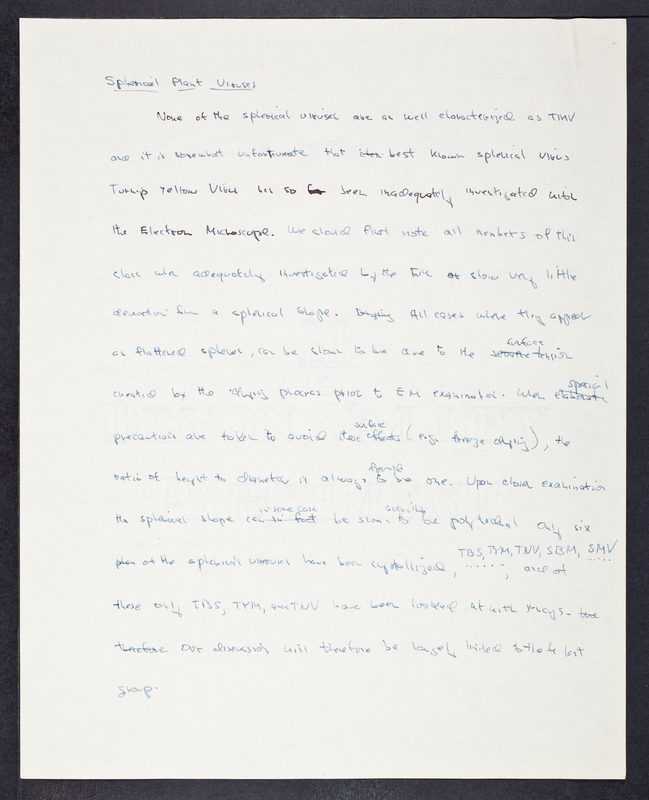 Spherical Plant Viruses
None of the spherical viruses are as well characterized as TMV
and it is somewhat unfortunate that best known spherical virus
Turnip Yellow Virus has so been inadequately investigated with
the Electron Microscope. We should first note all members of this
class when adequately investigated by the EM show very little
deviation from a spherical shape. All cases where they appear
as flattened spheres, can be shown to be due to the surface tension
created by the drying process prior to EM examination. When special
precautions are taken to avoid surface effects (e.g. freeze drying), the
ratio of height to diameter is always found to be one. Upon closer examination
the spherical shape can in some cases be shown to be polyhedral Only six
of the spherical viruses have been crystallized, TBS, TYM, TNV, SBM, SMV, and of
these only TBS, TYM, and TNV have been looked at with x-rays.
therefore Our discussion will therefore be largely limited to the last
group.